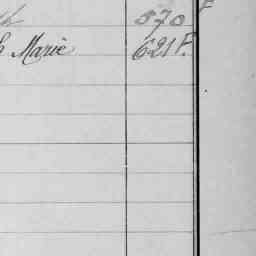 570 F
Marie 621 F.